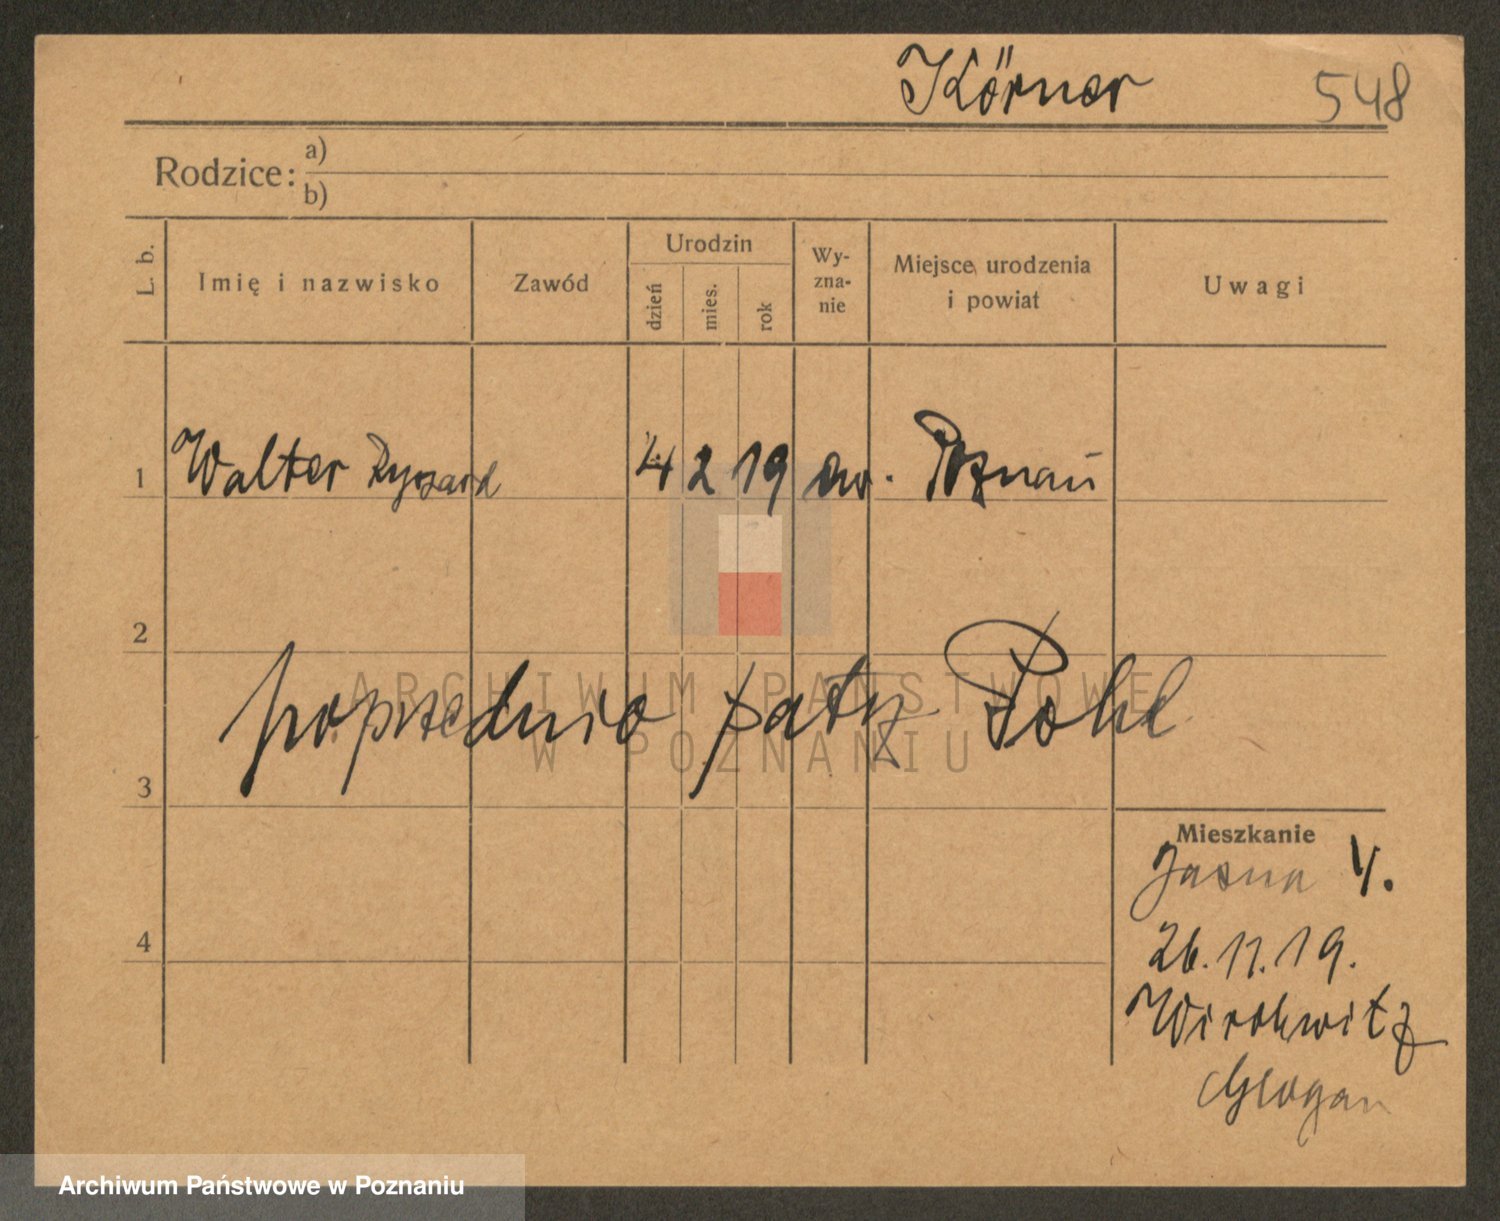 Körner 548
Rodzice: a)
b)
L. b.
Imię i nazwisko
Zawód
Urodzin
dzień
mies.
rok
Wy-
zna-
nie
Miejsce urodzenia
i powiat
Uwagi
1 Walter Ryszard 4 2 19 ew. Poznań
2
poprzednio patrz Pohl
ARCHIWUM PAŃSTWOWE
W POZNANIU
3
Mieszkanie
Jasna 4.
4
26.11.19.
Wirchwitz
Glogau
Archiwum Państwowe w Poznaniu